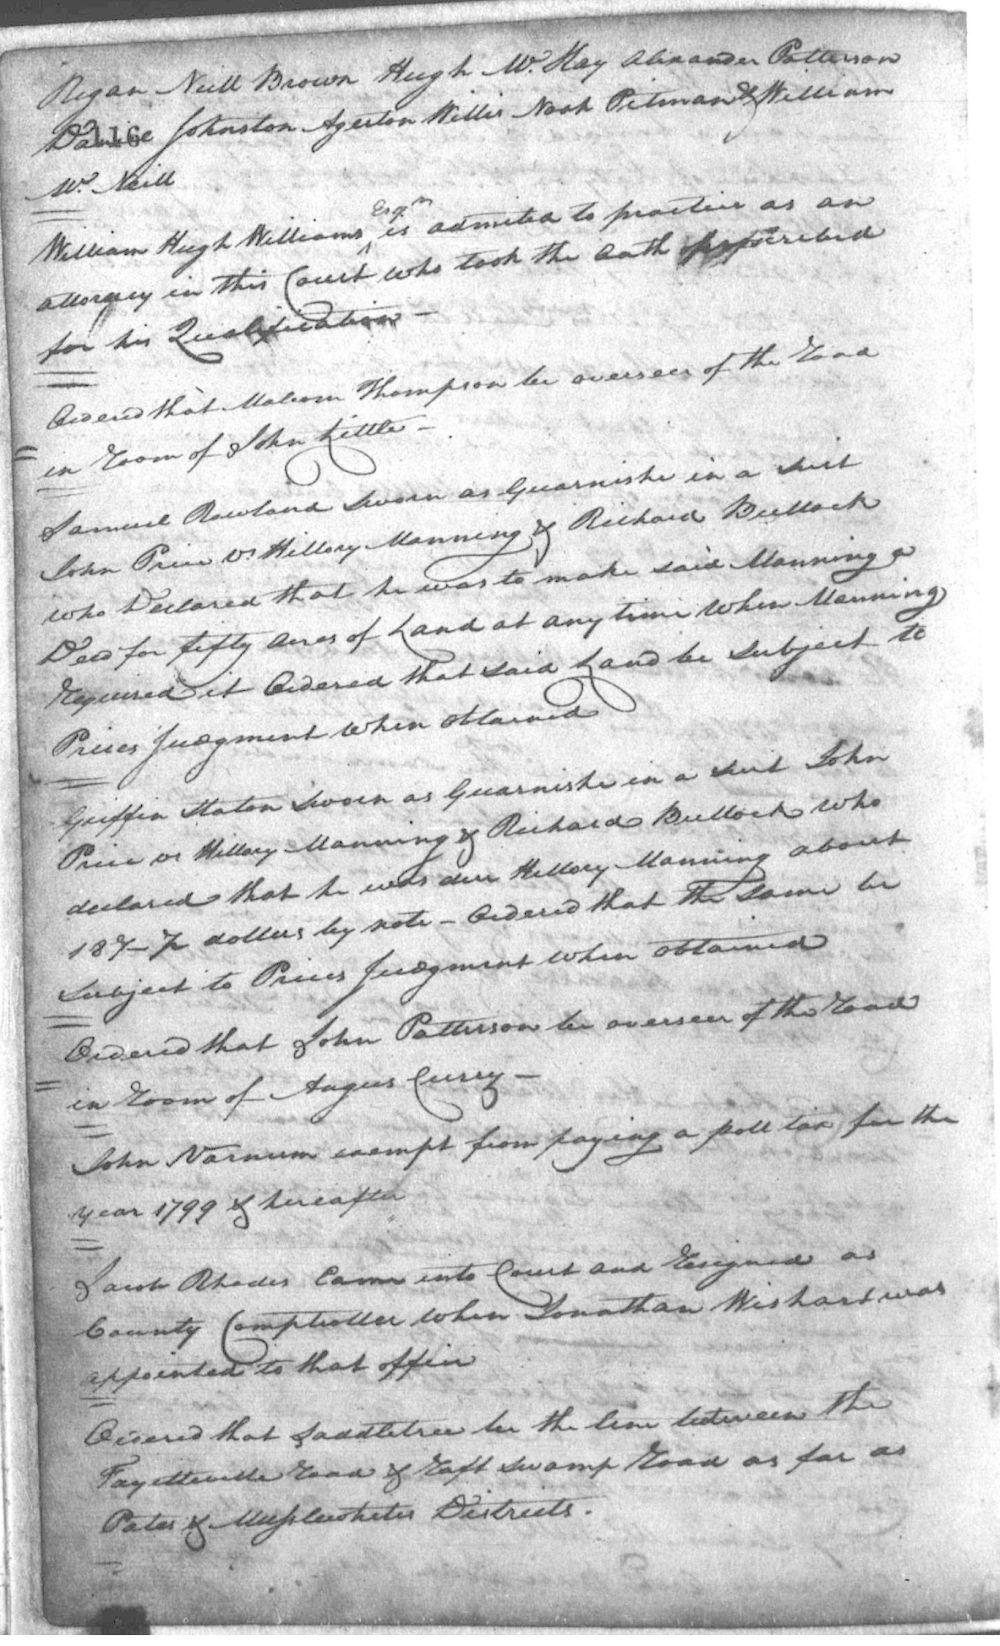 Regan Neill Brown Hugh Mc Kay Alexander Patterson
116
Daniel Johnston Agerton Willis Noah Pitman & William
Mc Neill
William Hugh Williams Esqr is admited to practice as an
attorney in this Court who took the Oath prescribed
for his Qualification —
Ordered that Malcom Thompson be overseer of the Road
in Room of John Little —
Samuel Rowland Sworn as Guarnishe in a Suit
John Price vs Hillory Manning & Richard Bullock
who Declared that he was to make said Manning a
Deed for fifty acres of Land at any time when Manning
Required it Ordered that said Land be Subject to
Prices Judgment when obtained
Griffin Staton Sworn as Guarnishe in a Suit John
Price vs Hillory Manning & Richard Bullock who
declared that he was due Hillory Manning about
187- dollers by note - Ordered that the Same be
Subject to Prices Judgment when obtained
Ordered that John Patterson be overseer of the Road
in Room of Angus Curry —
John Varnum exempt from paying a poll tax for the
year 1799 & hereafter
Jacob Rhodes Came into Court and Resigned as
County Comptroller when Jonathan Wishart was
appointed to that office
Ordered that Saddletree be the line between the
Fayetteville Road & Raft Swamp Road as far as
Pates & Musslewhites Districts.